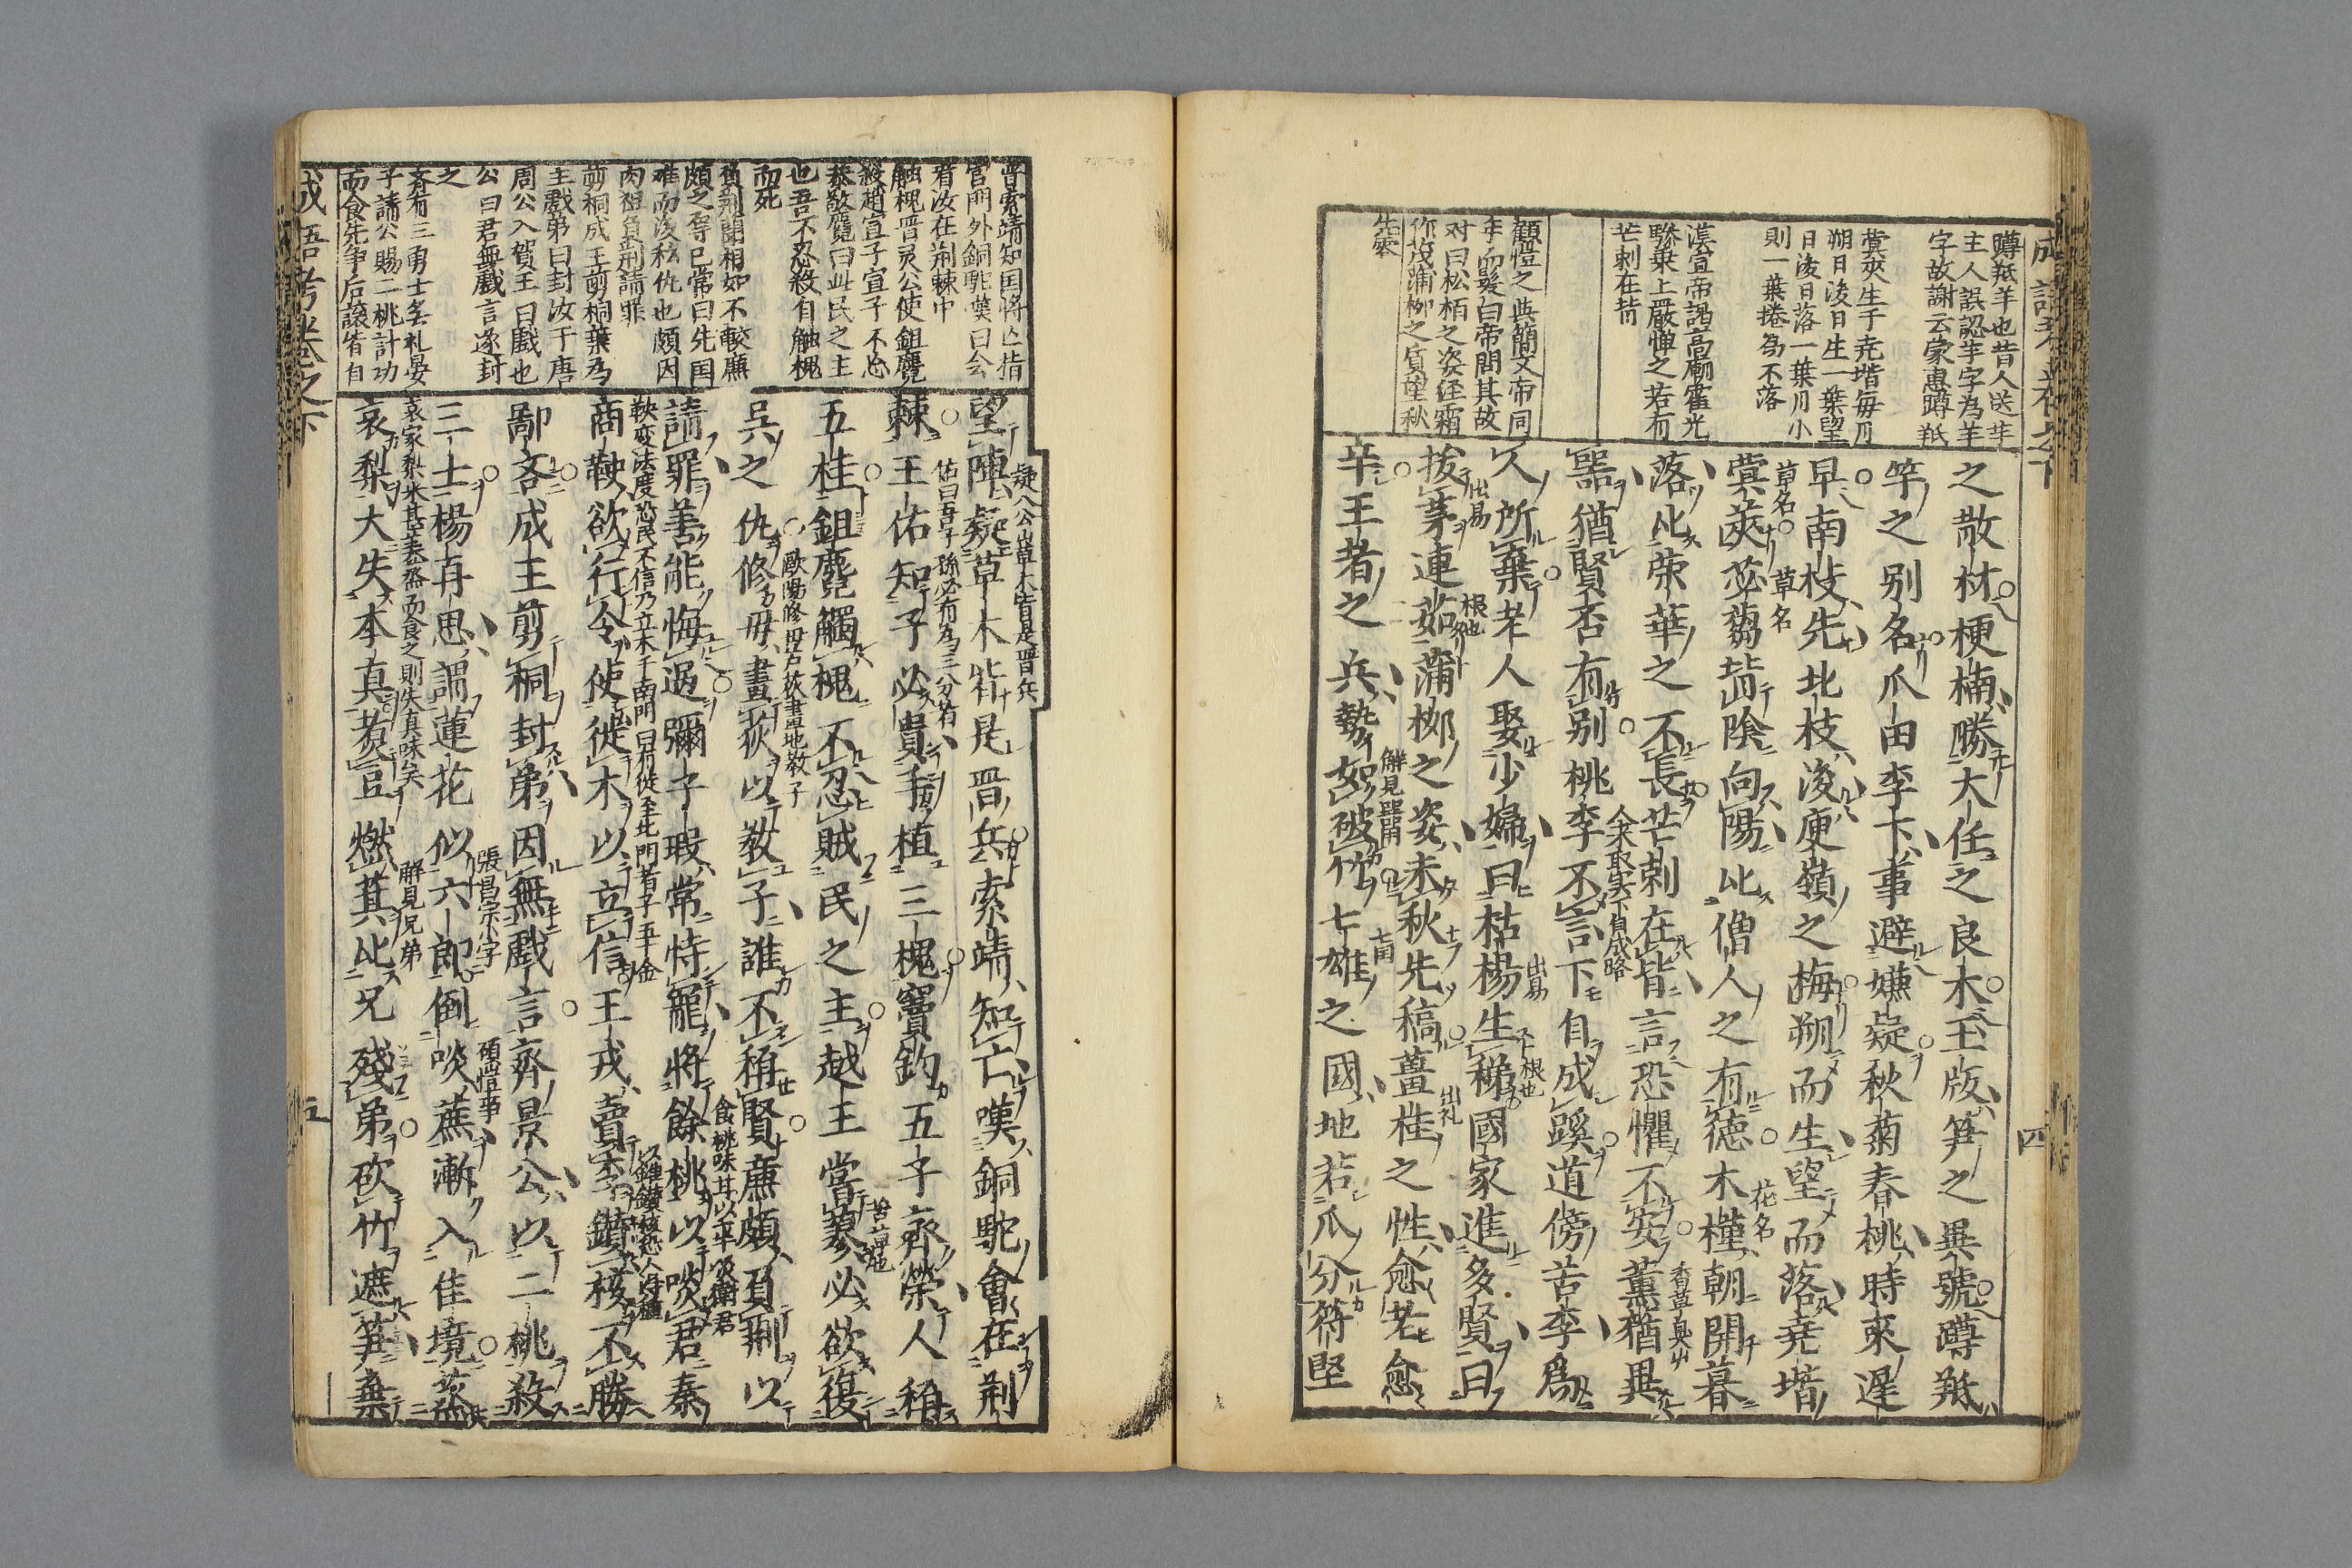 成語考卷之下
蹲羝羊也昔人送芋
主人誤認芋字為羊
字故謝云蒙惠蹲羝
蓂莢生于尭堦毎月
朔日後日生一葉望
日後日落一葉月小
則一葉捲為不落
漢宣帝謁高廟霍光
驂乗上嚴憚之若有
芒刺在背
顧愷之與簡文帝同
年而髪白帝問其故
对曰松栢之姿経霜
弥茂蒲柳之質望秋
先零
之散材梗楠勝大任之良木玉版笋之異號蹲羝
竿之别名瓜田李下事避嫌疑秋菊春桃時來遲
早南枝先北枝後庾嶺之梅朔而生望而落尭堦
草名 草名
蓂莢苾蒭背陰向陽比僧人之有徳木槿朝開暮
花名
落比荣華之不長芒刺在背言恐懼不安薫蕕異
香草臭艸
器猶賢否有别桃李不言下自成蹊道傍苦李為
人来取実下自成路
人所棄老人娶少婦曰枯楊生稊國家進多賢曰
出易 出易 根也
拔茅連茹蒲柳之姿未秋先稿薑桂之性愈老愈
根也 出礼
辛王者之兵勢如破竹七雄之國地若瓜分符堅
四
晋索靖知国将亡指
官門外銅駝嘆曰会
看汝在荆棘中
触槐晋灵公使鉏麑
殺趙宣子宣子不忘
恭敬麑曰此民之主
也吾不忍殺自触槐
而死
負荆藺相如不較廉
頗之辱已常曰先国
难而後私仇也頗因
肉袒負荆請罪
剪桐成王剪桐葉為
主戲弟曰封汝于唐
周公入賀王曰戲也
公曰君無戲言遂封
之
斉有三勇士無礼晏
子請公賜二桃計功
而食先争后讓皆自
望陣疑草木皆是晋兵索靖知亡嘆銅駝會在荆
疑八公山草木皆是晋兵
棘王佑知子必貴手植三槐竇鈞五子齊榮人稱
佑曰吾子孫必有為三公者
五桂鉏麑觸槐不忍賊民之主越王嘗蓼必欲復
苦草也
呉之仇修母畫荻以教子誰不稱賢廉頗負荆以
歐陽修母以荻畫地教子
請罪善能悔過彌子瑕常恃寵將餘桃以啖君秦
食桃味甘以半啖衛君
商鞅欲行令使徙木以立信王戎賣李鑚核不勝
鞅変法度恐民不信乃立木于南門曰有徙至北門者予五十金
以錐鑚核恐人得種
鄙吝成王剪桐封弟因無戲言齊景公以二桃殺
三士楊再思謂蓮花似六郎倒啖蔗漸入佳境蒸
張昌宗小字 顧愷事
哀梨大失本真煮豆燃萁比兄殘弟砍竹遮笋棄
哀家梨米甘美蒸而食之則失真味矣
解見兄弟
成語考卷之下
五